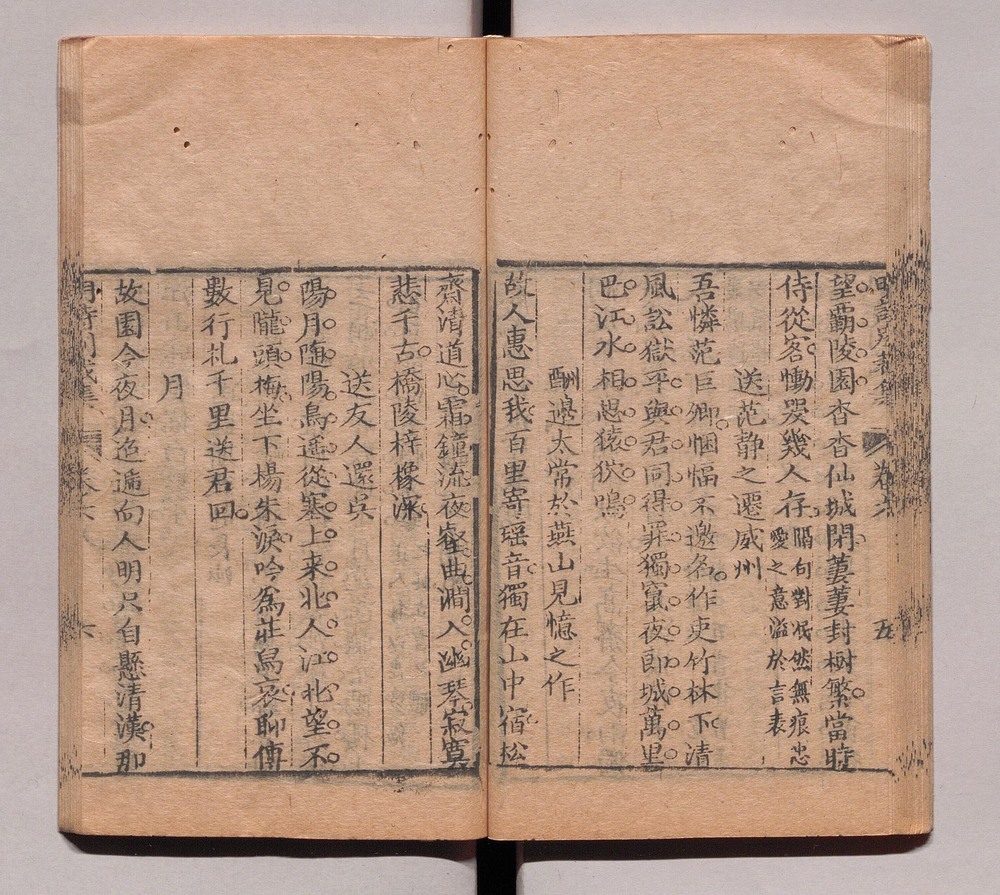 明詩別裁集 卷六 五
望霸陵園杳杳仙城閉萋萋封樹繁當時
侍從客慟哭幾人存
隔句對泯然無痕忠
愛之意溢於言表
送范静之遷威州
吾憐范巨卿悃愊不邀名作吏竹林下清
風訟獄平與君同得罪獨竄夜郎城萬里
巴江水相思猿狖鳴
酬邊太常於燕山見憶之作
故人惠思我百里寄瑶音獨在山中宿松
齋清道心霜鐘流夜壑曲澗入幽琴寂寞
悲千古橋陵梓橡深
送友人還吳
陽月隨陽鳥遥從塞上来北人江北望不
見隴頭梅坐下楊朱淚吟爲莊舄哀聊傳
數行札千里送君回
月
故園今夜月迢遞向人明只自懸清漢那
明詩別裁集 卷六 六